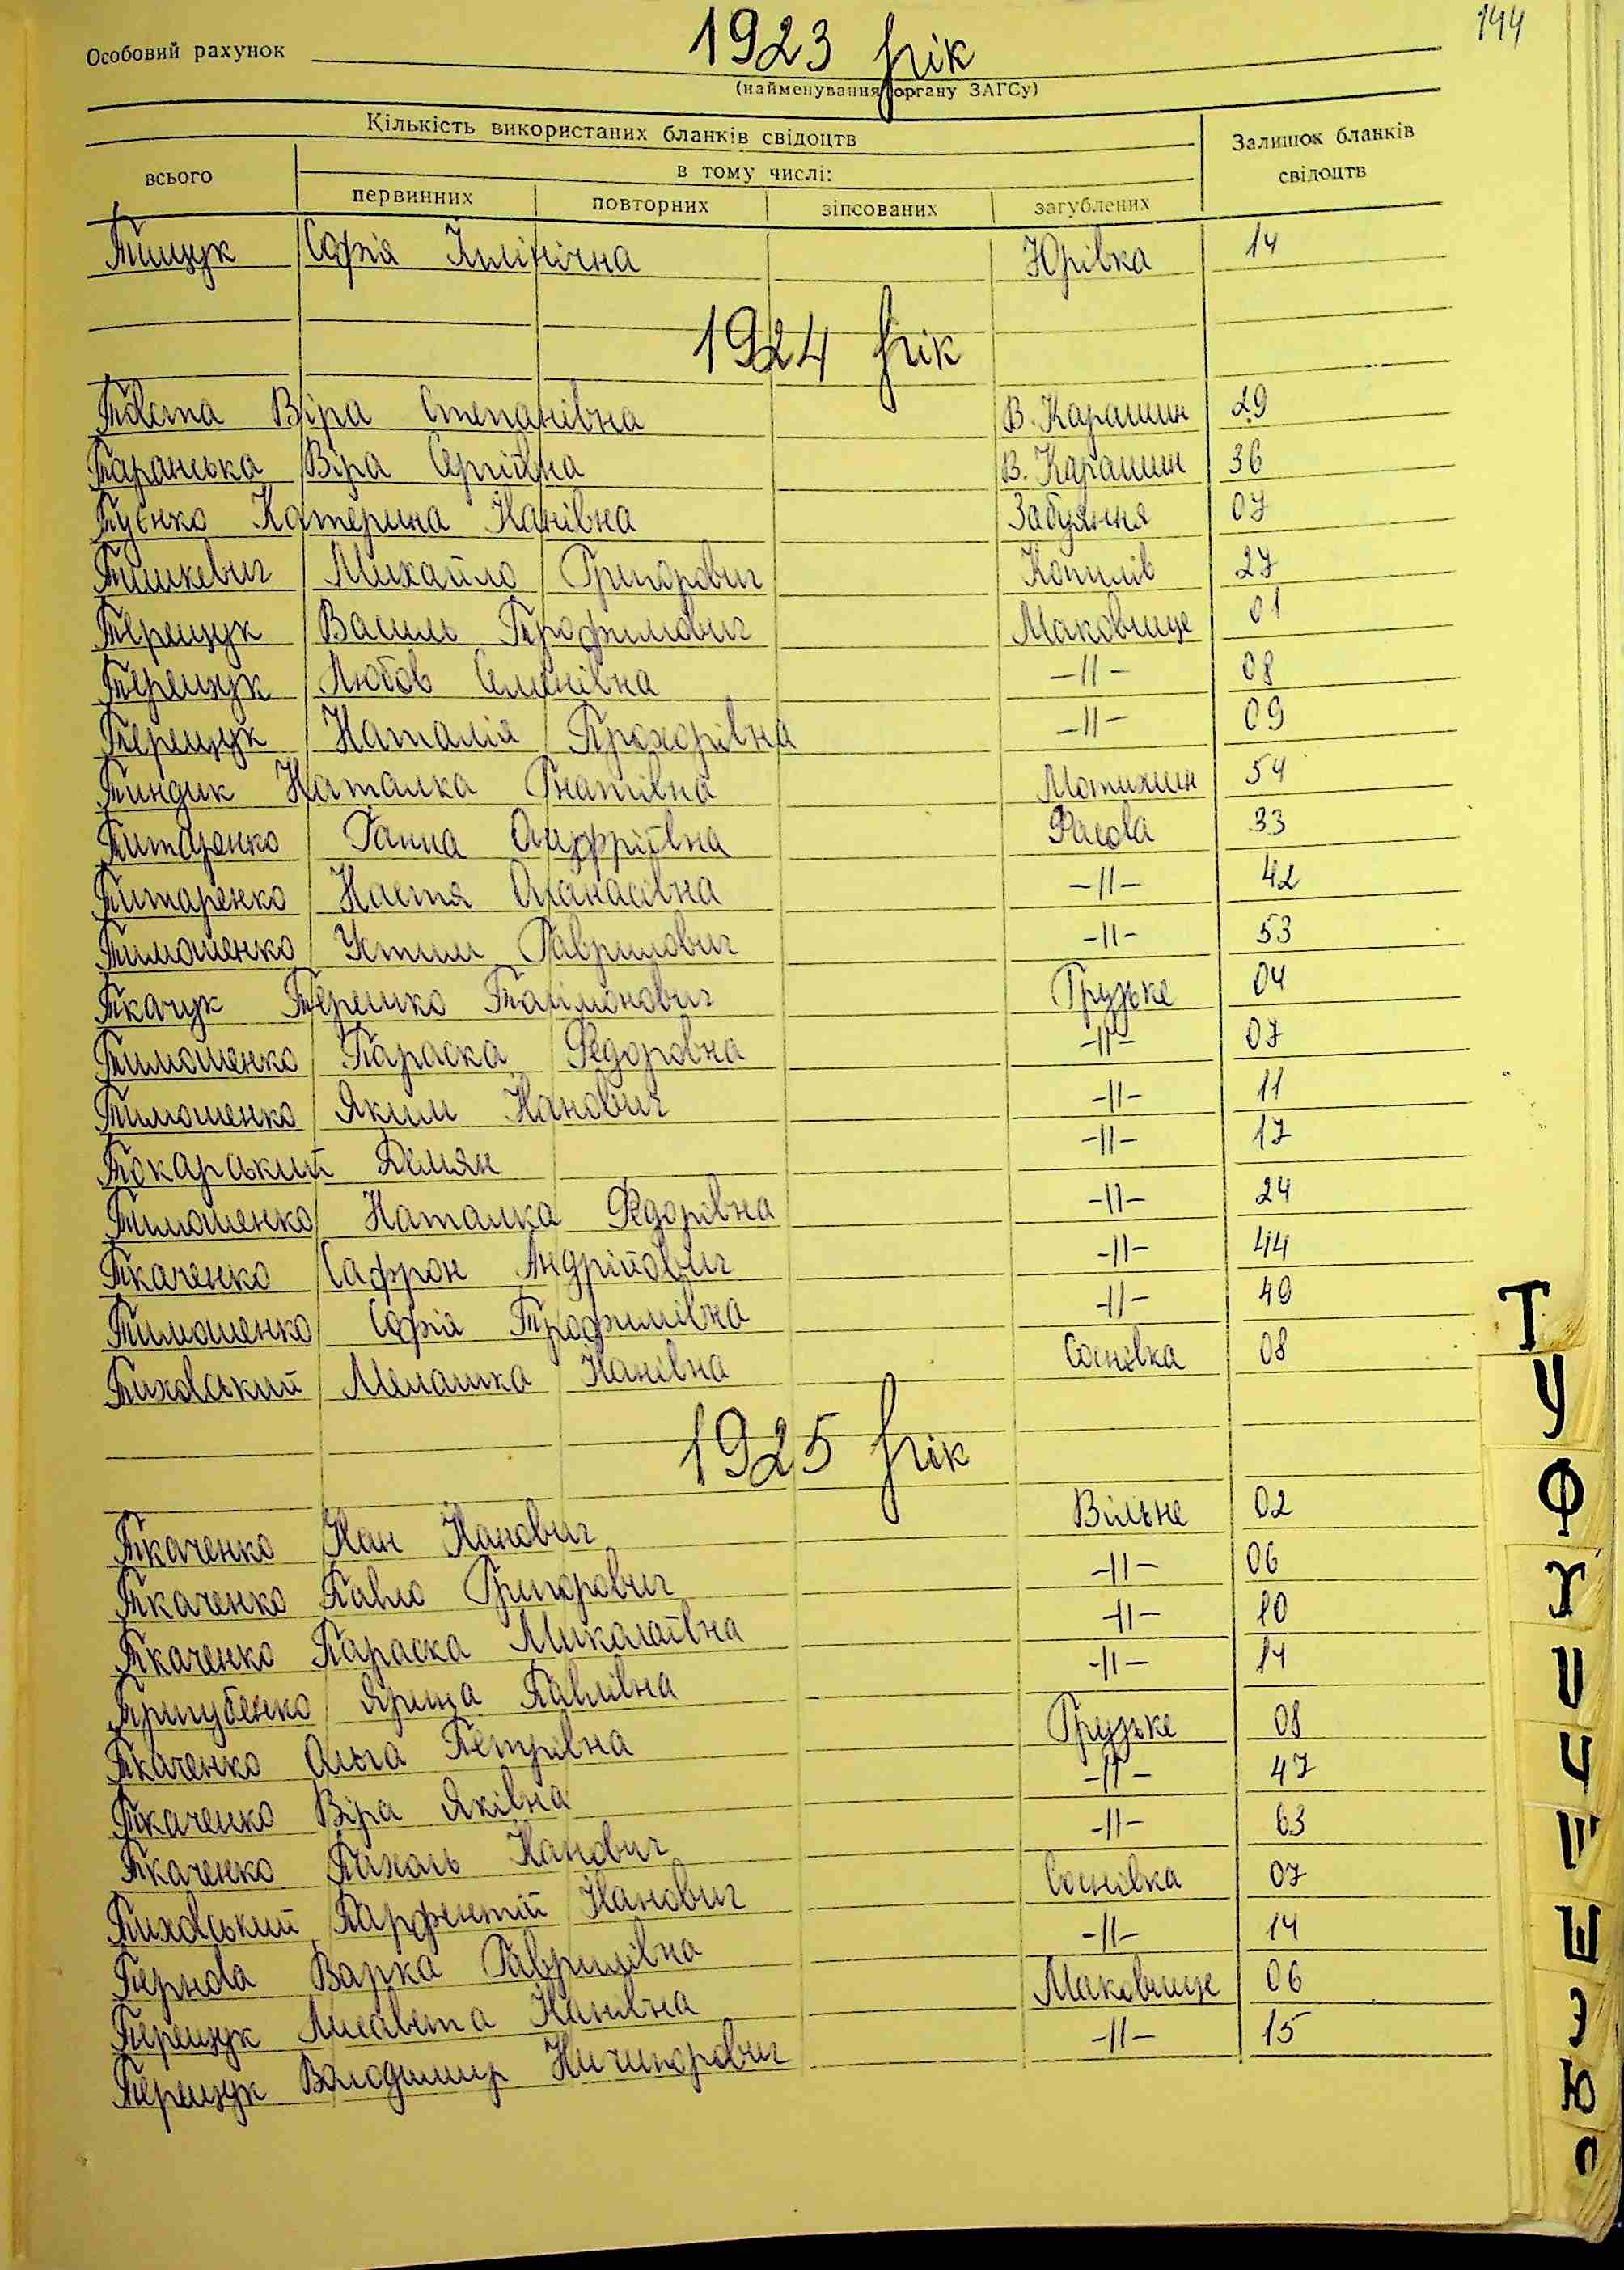 144
Особовий рахунок 1923 рік
(найменування органу ЗАГСу)
Кількість використаних бланків свідоцтв Залишок бланків свідоцтв
всього в тому числі:
первинних повторних зіпсованих загублених
Тищук Софія Юрівка 14
1924 рік
Товста Віра Степанівна В. Карашин 29
Таранська Віра Сергіївна В. Карашин 36
Катерина Іванівна Забуяння 07
Тишкевич Михайло Григорович Копилів 27
Терещук Василь Трофимович Маковище 01
Терещук Любов Семенівна -||- 08
Терещук Наталія Прохорівна -||- 09
Тиндик Наталка Гнатівна Мотижин 54
Титаренко Ганна Онуфріївна Фасова 33
Титаренко Настя Опанасівна -||- 42
Тимошенко Устим Гаврилович -||- 53
Ткачук Терешко Грузьке 04
Тимошенко Параска Федоровна -||- 07
Тимошенко Яким Іванович -||- 11
Токарський Демян -||- 17
Тимошенко Наталка Федорівна -||- 24
Ткаченко Сафрон Андрійович -||- 44
Тимошенко Софія Трофимівна -||- 49
Тиховський Мелашка Іванівна Соснівка 08
1925 рік
Ткаченко Іван Іванович Вільне 02
Ткаченко Павло Григорович -||- 06
Ткаченко Параска Миколаївна -||- 10
Ярина Павлівна -||- 14
Ткаченко Ольга Петрівна Грузьке 08
Ткаченко Віра Яківна -||- 47
Ткаченко Іванович -||- 63
Тиховський Парфентій Іванович Соснівка 07
Тернова Варка Гаврилівна -||- 14
Терещук Лисавета Іванівна Маковище 06
Терещук Володимир Ничипорович -||- 15
Т
У
Ф
Х
Ц
Ч
Ш
Щ
Э
Ю